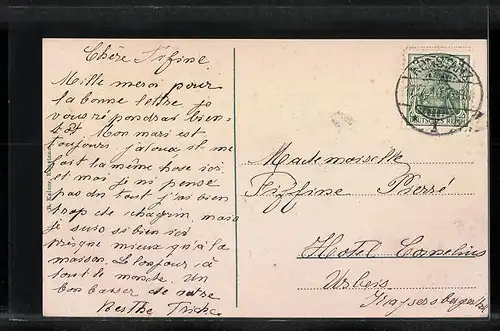 Chère Fifine.
Mille merci pour
la bonne lettre, je
vous répondrai bien-
tôt. Mon mari est
toujours jaloux il me
fait la même chose ici
et moi je ni pense
pas du tout, j'ai bien
trop de chagrin, mais
je suis si bien ici
presque mieux qu'à la
maison. Le bonjour à
tout le monde. Un
bon baiser de votre
Berthe
Mademoiselle
Fiffine Berré
Hotel Cornelius
Urbeis
DEUTSCHES REICH